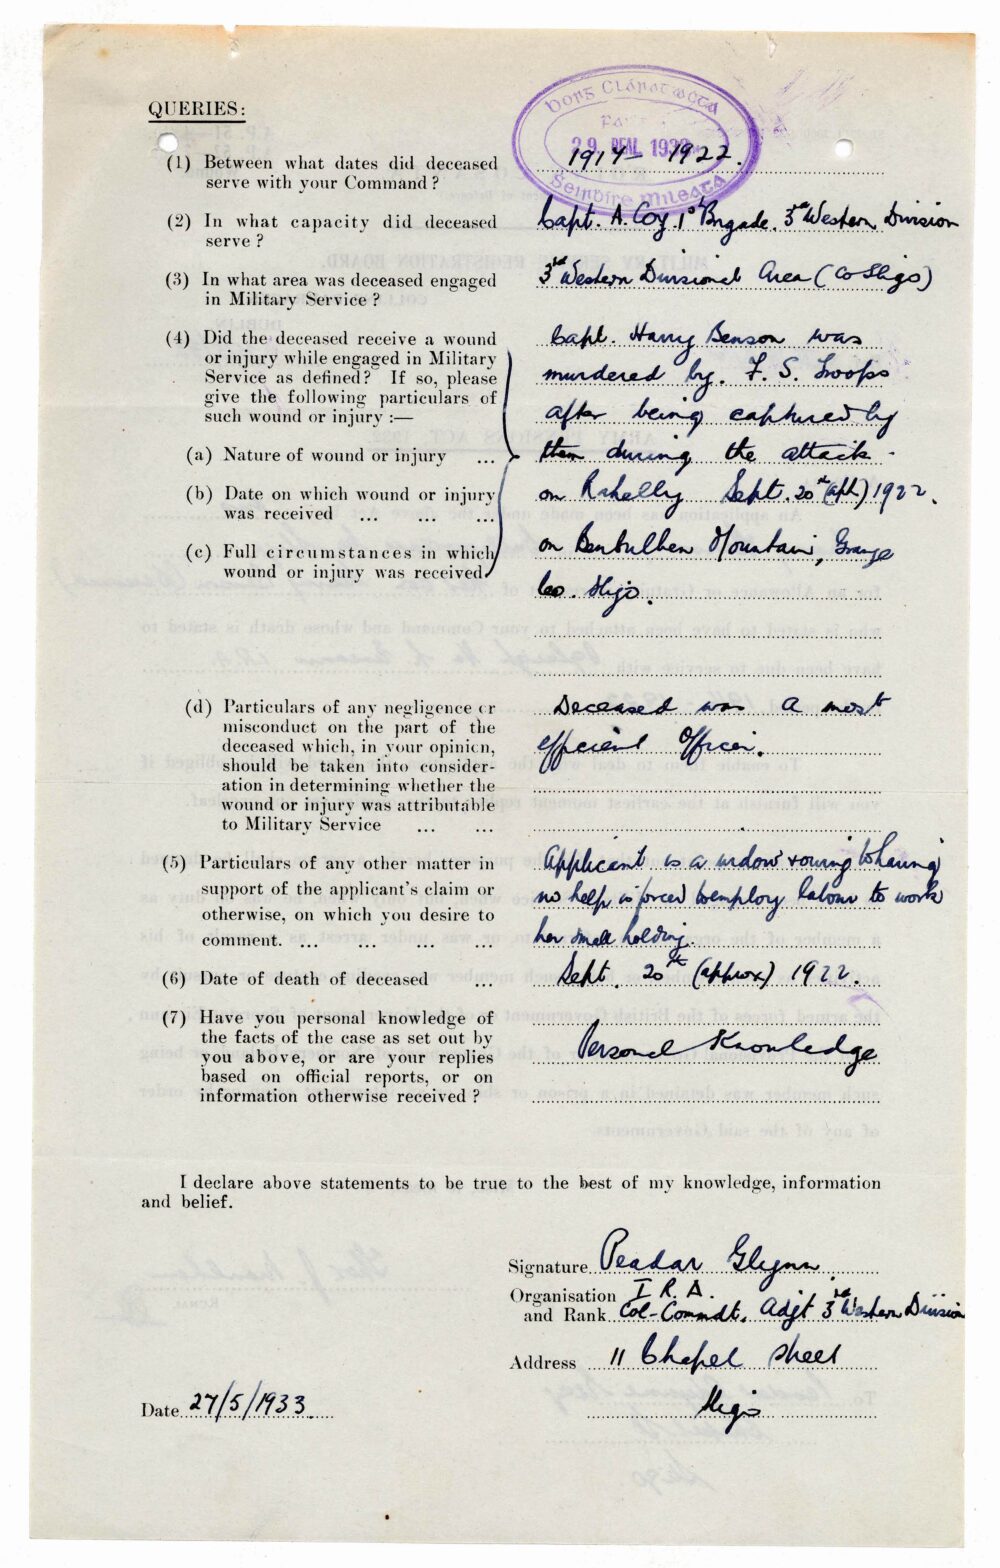 QUERIES:
Bórd Clárathachta
29 BEAL 1933
Seirbhíse Míleata
(1) Between what dates did deceased 1917 - 1922.
serve with your Command?
(2) In what capacity did deceased Capt. A. Coy. 1st Brigade. 3rd Western Division
serve?
(3) In what area was deceased engaged 3rd Western Divisional Area (Co Sligo)
in Military Service?
(4) Did the deceased receive a wound Capt. Harry Benson was
or injury while engaged in Military murdered by. F. S. Troops
Service as defined? If so, please
give the following particulars of after being captured by
such wound or injury :—
(a) Nature of wound or injury ... them during the attack.
(b) Date on which wound or injury on Rahelly Sept. 20th (aph) 1922.
was received ... ... ...
(c) Full circumstances in which on Benbulben Mountain, Grange
wound or injury was received
Co. Sligo.
(d) Particulars of any negligence or Deceased was a most
misconduct on the part of the
deceased which, in your opinion, efficient Officer.
should be taken into consider-
ation in determining whether the
wound or injury was attributable
to Military Service ... ...
(5) Particulars of any other matter in Applicant is a widow & owing to having
support of the applicant's claim or no help is forced to employ labour to work
otherwise, on which you desire to
comment. ... ... ... ... her small holding.
(6) Date of death of deceased ... Sept. 20th (approx) 1922.
(7) Have you personal knowledge of
the facts of the case as set out by Personal Knowledge
you above, or are your replies
based on official reports, or on
information otherwise received?
I declare above statements to be true to the best of my knowledge, information
and belief.
Signature Peadar Glynn.
Organisation I. R. A.
and Rank Col-Commdt. Adjt 3rd Western Division
Address 11 Chapel Street
Date 27/5/1933. Sligo